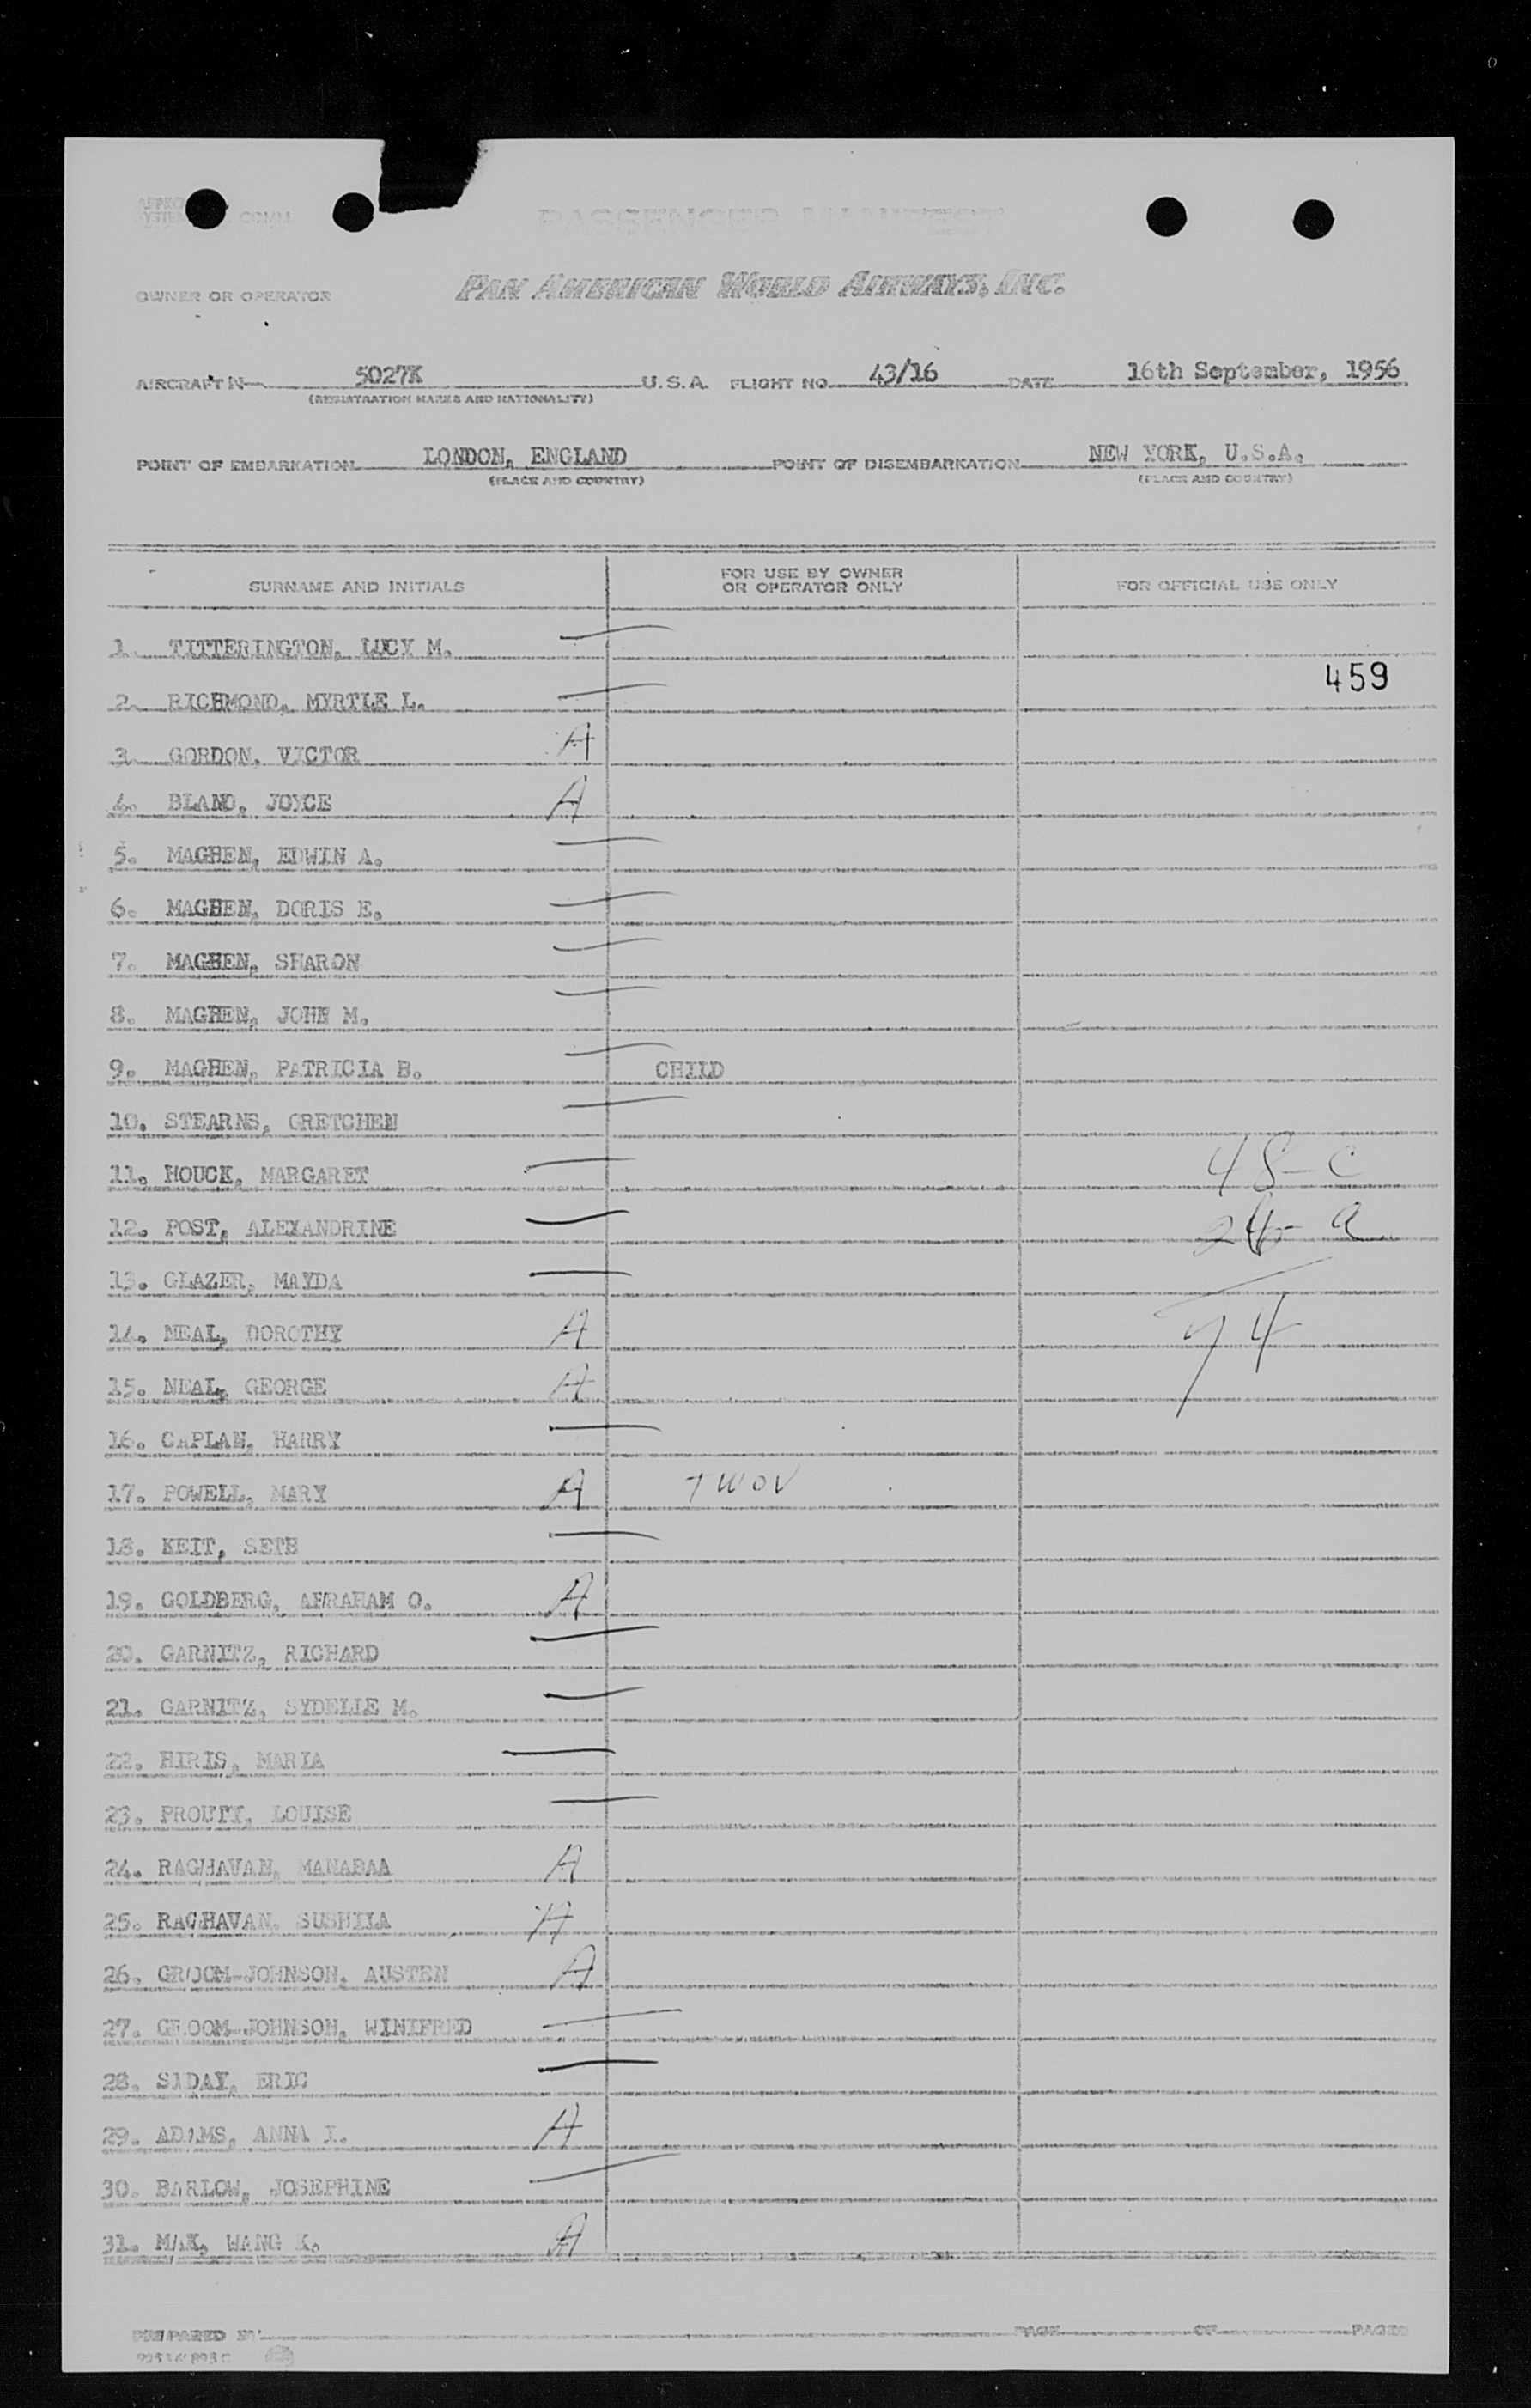 PASSENGER MANIFEST
OWNER OR OPERATOR PAN AMERICAN WORLD AIRWAYS, INC.
AIRCRAFT N 5027K U.S.A. FLIGHT NO. 43/16 DATE 16th September, 1956
(REGISTRATION MARKS AND NATIONALITY)
POINT OF EMBARKATION LONDON, ENGLAND POINT OF DISEMBARKATION NEW YORK, U.S.A.
(PLACE AND COUNTRY) (PLACE AND COUNTRY)
SURNAME AND INITIALS FOR USE BY OWNER OR OPERATOR ONLY FOR OFFICIAL USE ONLY
1. TITTERINGTON, LUCY M. —
459
2. RICHMOND, MYRTLE L. —
3. GORDON, VICTOR A
4. BLAND, JOYCE A
5. MAGHEN, EDWIN A. —
6. MAGHEN, DORIS E. —
7. MAGHEN, SHARON —
8. MAGHEN, JOHN M. —
9. MAGHEN, PATRICIA B. — CHILD
10. STEARNS, GRETCHEN —
11. HOUCK, MARGARET — 48-C
12. POST, ALEXANDRINE — 26- a
13. GLAZER, MAYDA —
14. NEAL, DOROTHY A 74
15. NEAL, GEORGE A
16. CAPLAN, HARRY —
17. POWELL, MARY A TWOV
18. KEIT, SETH —
19. GOLDBERG, ABRAHAM O. A
20. GARNITZ, RICHARD —
21. GARNITZ, SYDELLE M. —
22. HIRIS, MARIA —
23. PROUTY, LOUISE —
24. RAGHAVAN, MANABAA A
25. RAGHAVAN, SUSHILA A
26. GROOM-JOHNSON, AUSTEN A
27. GROOM-JOHNSON, WINIFRED —
28. SIDAY, ERIC —
29. ADAMS, ANNA I. A
30. BARLOW, JOSEPHINE —
31. MAK, WANG K. A
PREPARED BY PAGE OF PAGES